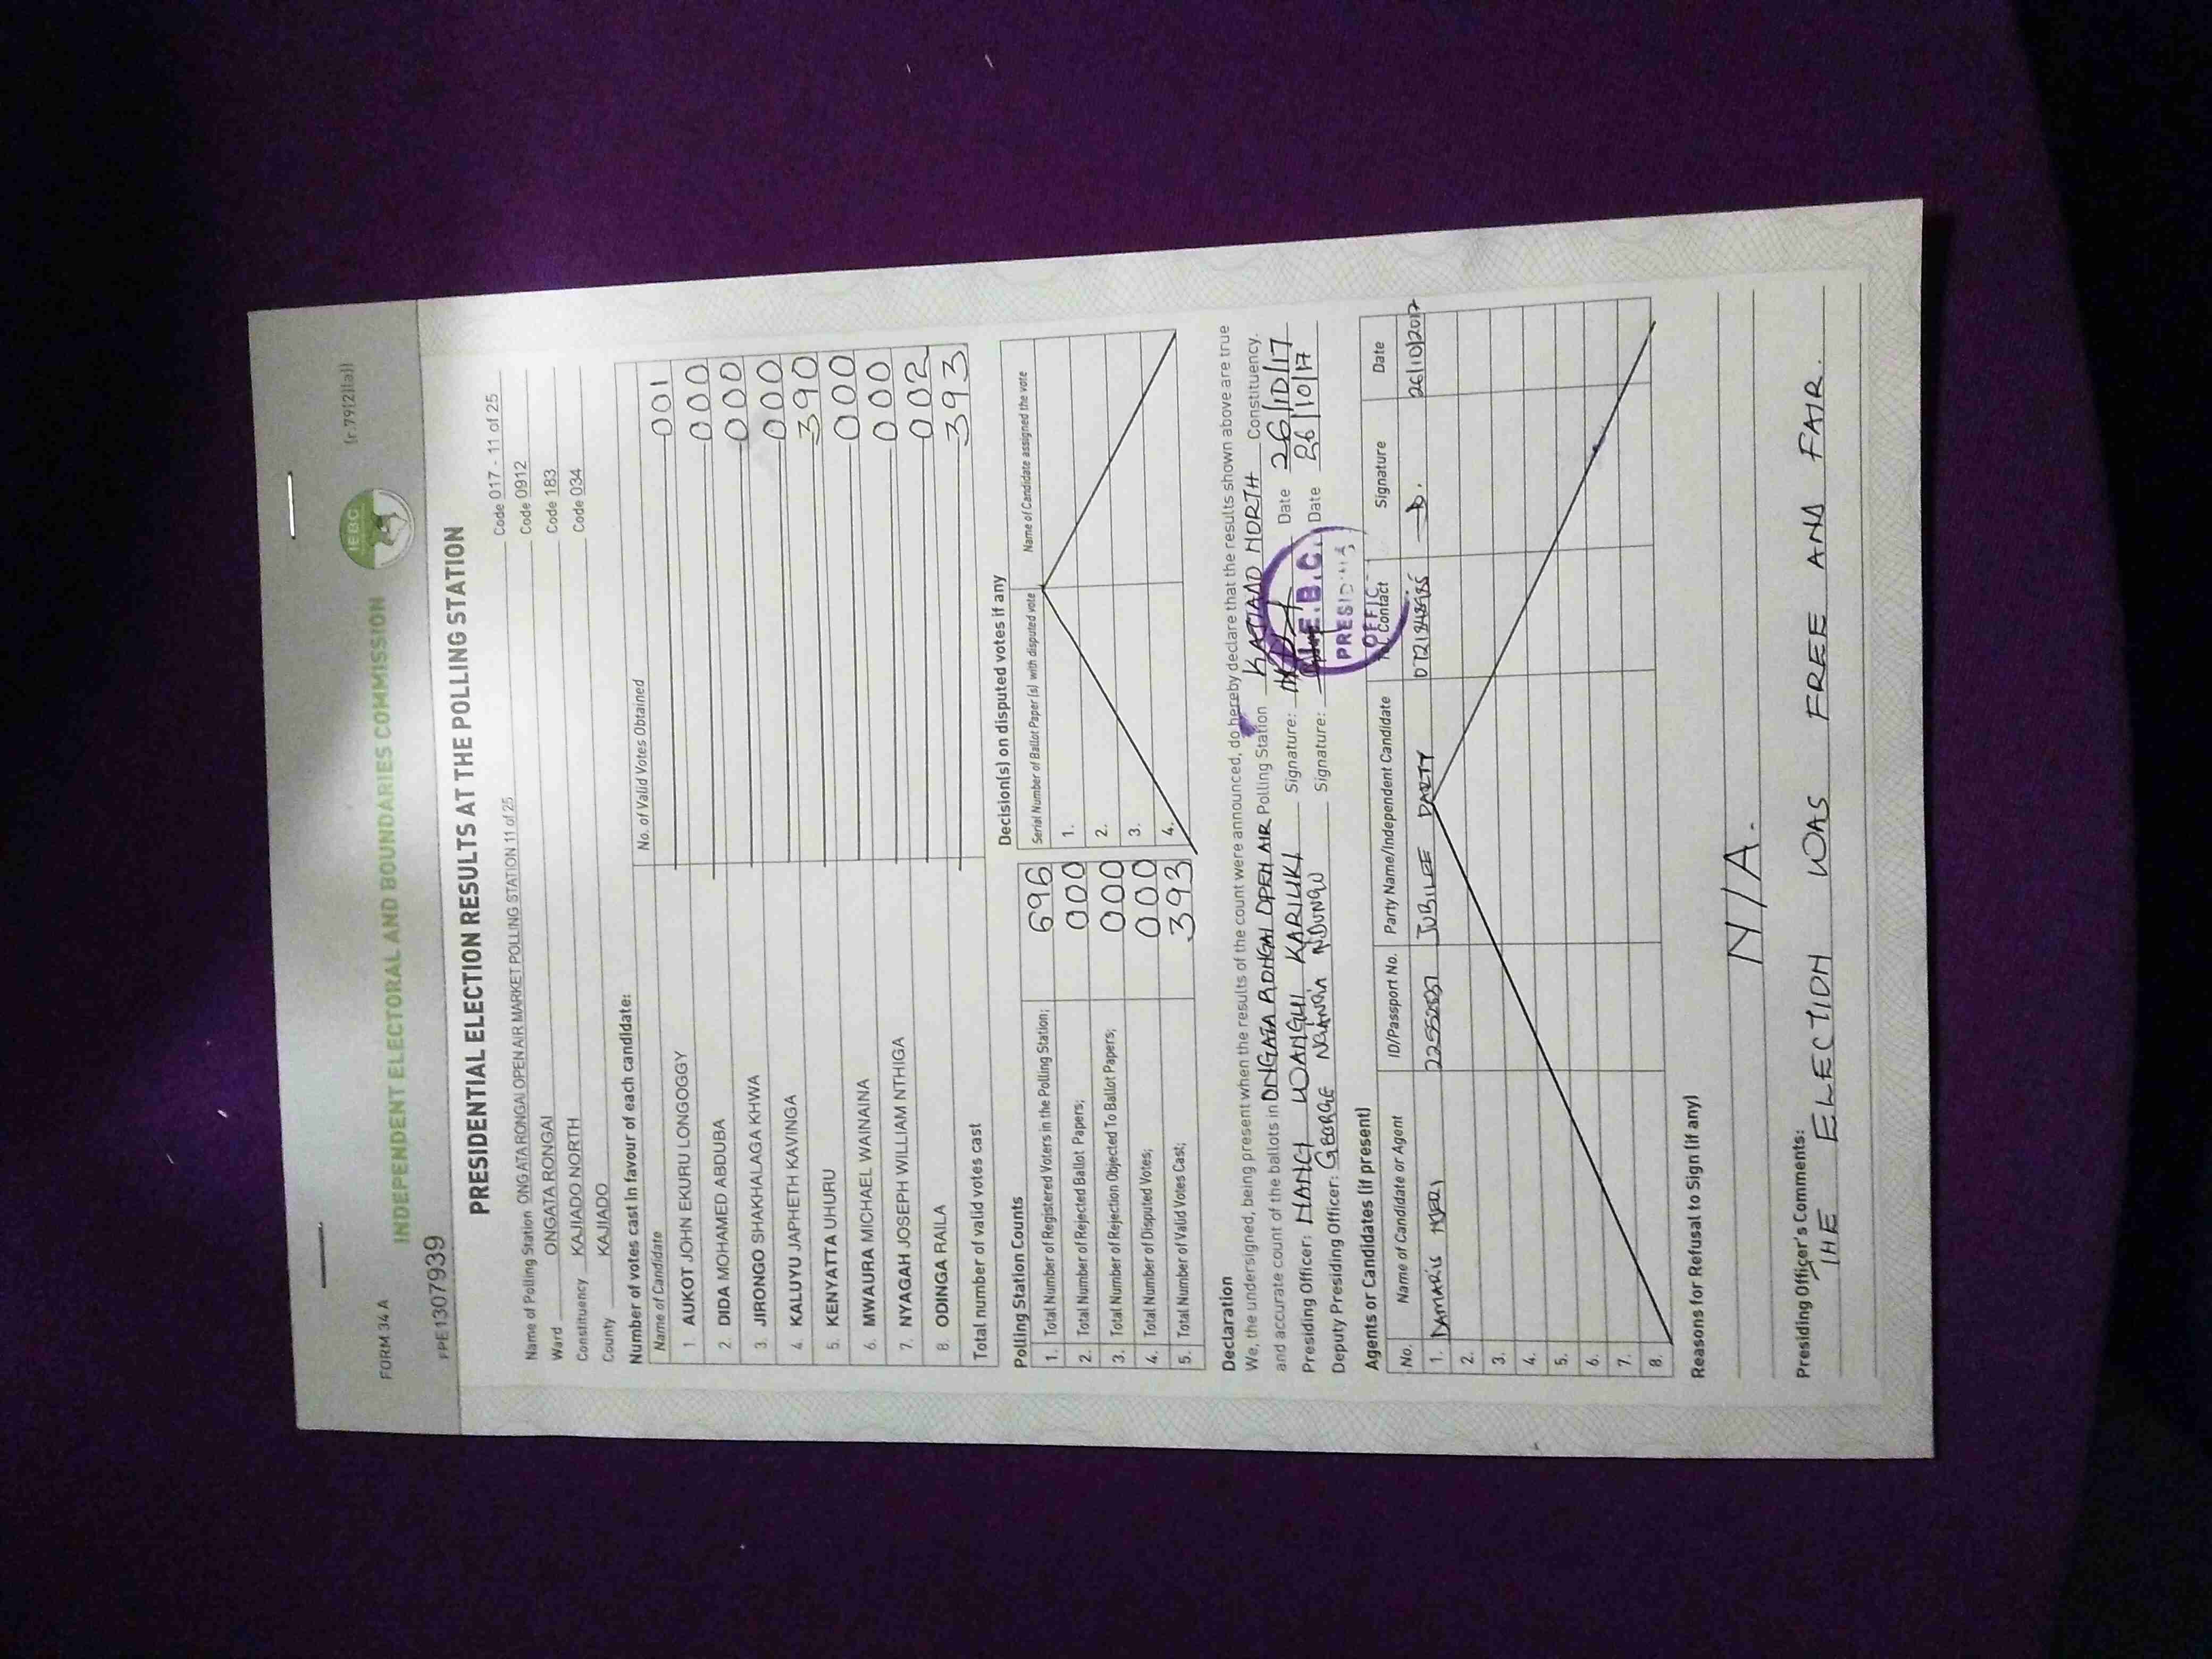 FORM 34 A
(r.79(2)(a))
IEBC
INDEPENDENT ELECTORAL AND BOUNDARIES COMMISSION
FPE1307939
PRESIDENTIAL ELECTION RESULTS AT THE POLLING STATION
Name of Polling Station ONGATA RONGAI OPEN AIR MARKET POLLING STATION 11 of 25 Code 017 - 11 of 25
Ward ONGATA RONGAI Code 0912
Constituency KAJIADO NORTH Code 183
County KAJIADO Code 034
Number of votes cast in favour of each candidate:
Name of Candidate No. of Valid Votes Obtained
1 AUKOT JOHN EKURU LONGOGGY 001
2. DIDA MOHAMED ABDUBA 000
3. JIRONGO SHAKHALAGA KHWA 000
4. KALUYU JAPHETH KAVINGA 000
5. KENYATTA UHURU 390
6. MWAURA MICHAEL WAINAINA 000
7. NYAGAH JOSEPH WILLIAM NTHIGA 000
8. ODINGA RAILA 002
Total number of valid votes cast 393
Polling Station Counts
1. Total Number of Registered Voters in the Polling Station; 696
2. Total Number of Rejected Ballot Papers; 000
3. Total Number of Rejection Objected To Ballot Papers; 000
4. Total Number of Disputed Votes; 000
5. Total Number of Valid Votes Cast; 393
Decision(s) on disputed votes if any
Serial Number of Ballot Paper (s) with disputed vote Name of Candidate assigned the vote
1.
2.
3.
4.
Declaration
We, the undersigned, being present when the results of the count were announced, do hereby declare that the results shown above are true
and accurate count of the ballots in ONGATA RONGAI OPEN AIR Polling Station KAJIADO NORTH Constituency.
Presiding Officer: NANCY WANGUI KARIUKI Signature: Date 26/10/17
Deputy Presiding Officer: GEORGE NDUNGU Signature: Date 26/10/17
I.E.B.C.
PRESIDING
OFFIC
Agents or Candidates (if present)
No. Name of Candidate or Agent ID/Passport No. Party Name/Independent Candidate Contact Signature Date
1. DAMARIS JUBILEE PARTY 26/10/2017
2.
3.
4.
5.
6.
7.
8.
Reasons for Refusal to Sign (if any)
N/A.
Presiding Officer's Comments:
THE ELECTION WAS FREE AND FAIR.